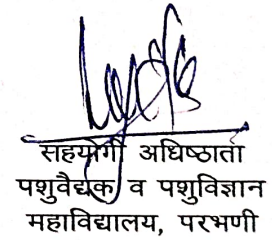 सहयोगी अधिष्ठाता
पशुवैद्यक व पशुविज्ञान
महाविद्यालय, परभणी